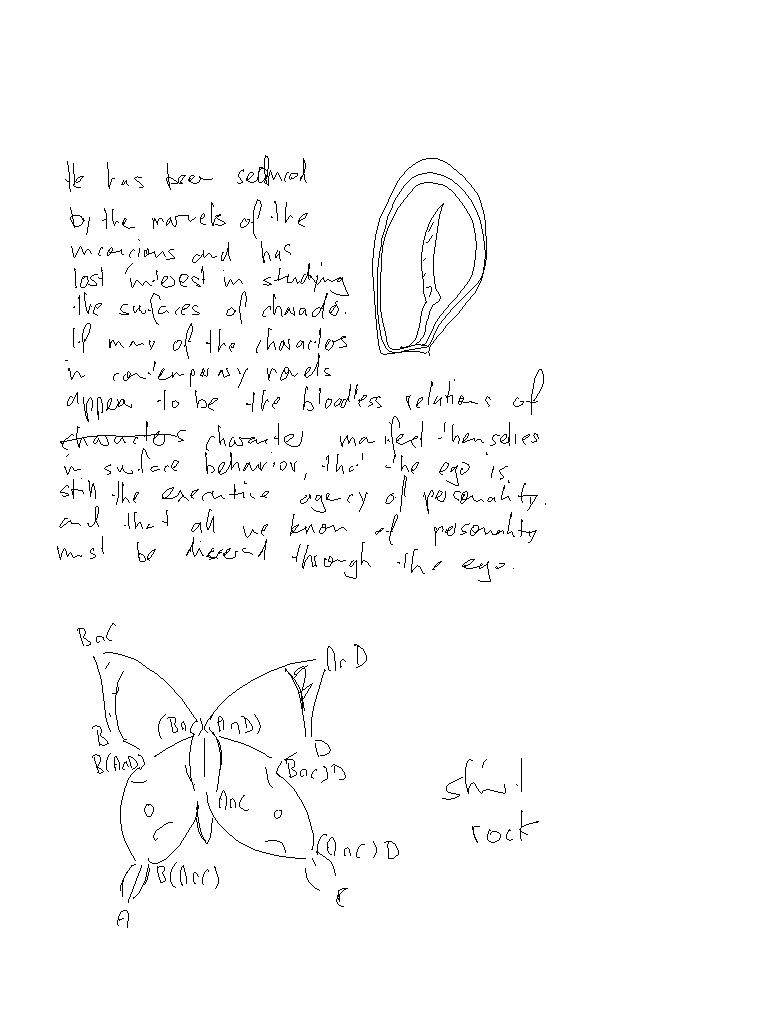 He has been seduced
by the marvels of the
unconcious and has
lost interest in studying
the surfaces of character.
If many of the characters
in contemporary novels
appear to be the bloodless relations of
characters character manifest themselves
in surface behavior, that the ego is
still the executive agency of personality.
and that all we know of personality
must be discerned through the ego.
B∩C
A∩D
(B∩C) (A∩D)
B
D
B(A∩D)
(B∩C)D
A∩C
(A∩C)D
B(A∩C)
C
A
rock